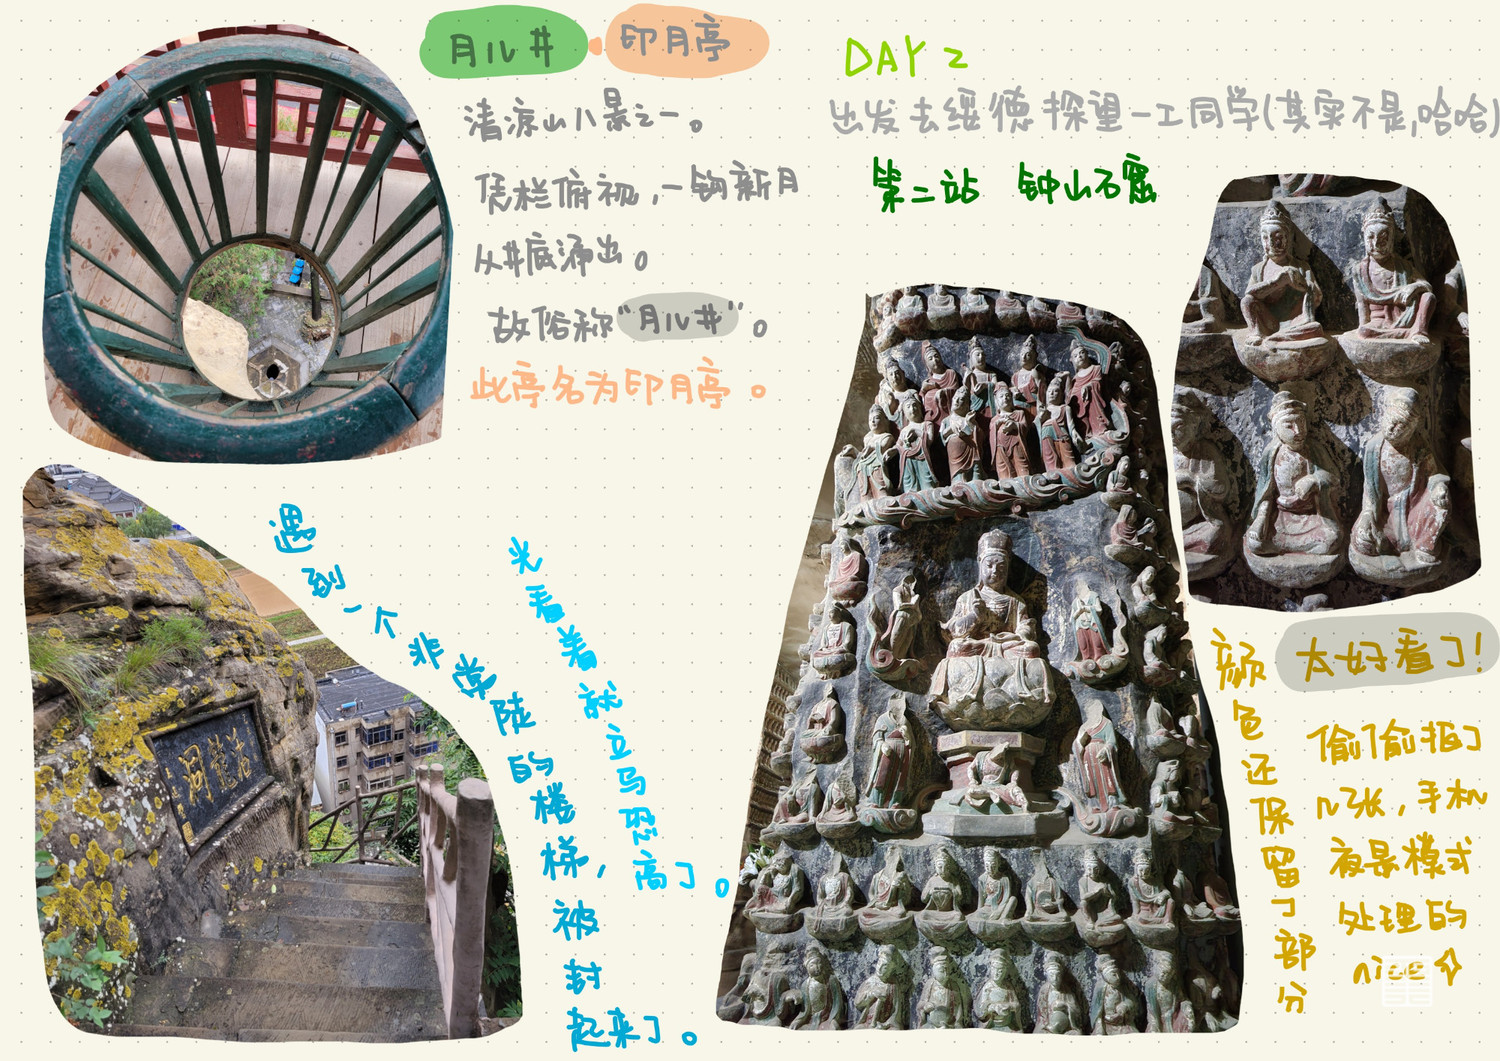 月儿井
印月亭
清凉山八景之一。
凭栏俯视，一钩新月
从井底涌出。
故俗称“月儿井”。
此亭名为印月亭。
遇到一个非常陡的楼梯，被封起来了。
光看着就立马恐高了。
活龍洞
DAY 2
出发去绥德探望一工同学(其实不是,哈哈)
第二站 钟山石窟
颜色还保留了部分
太好看了!
偷偷拍了
几张，手机
夜景模式
处理的
nice